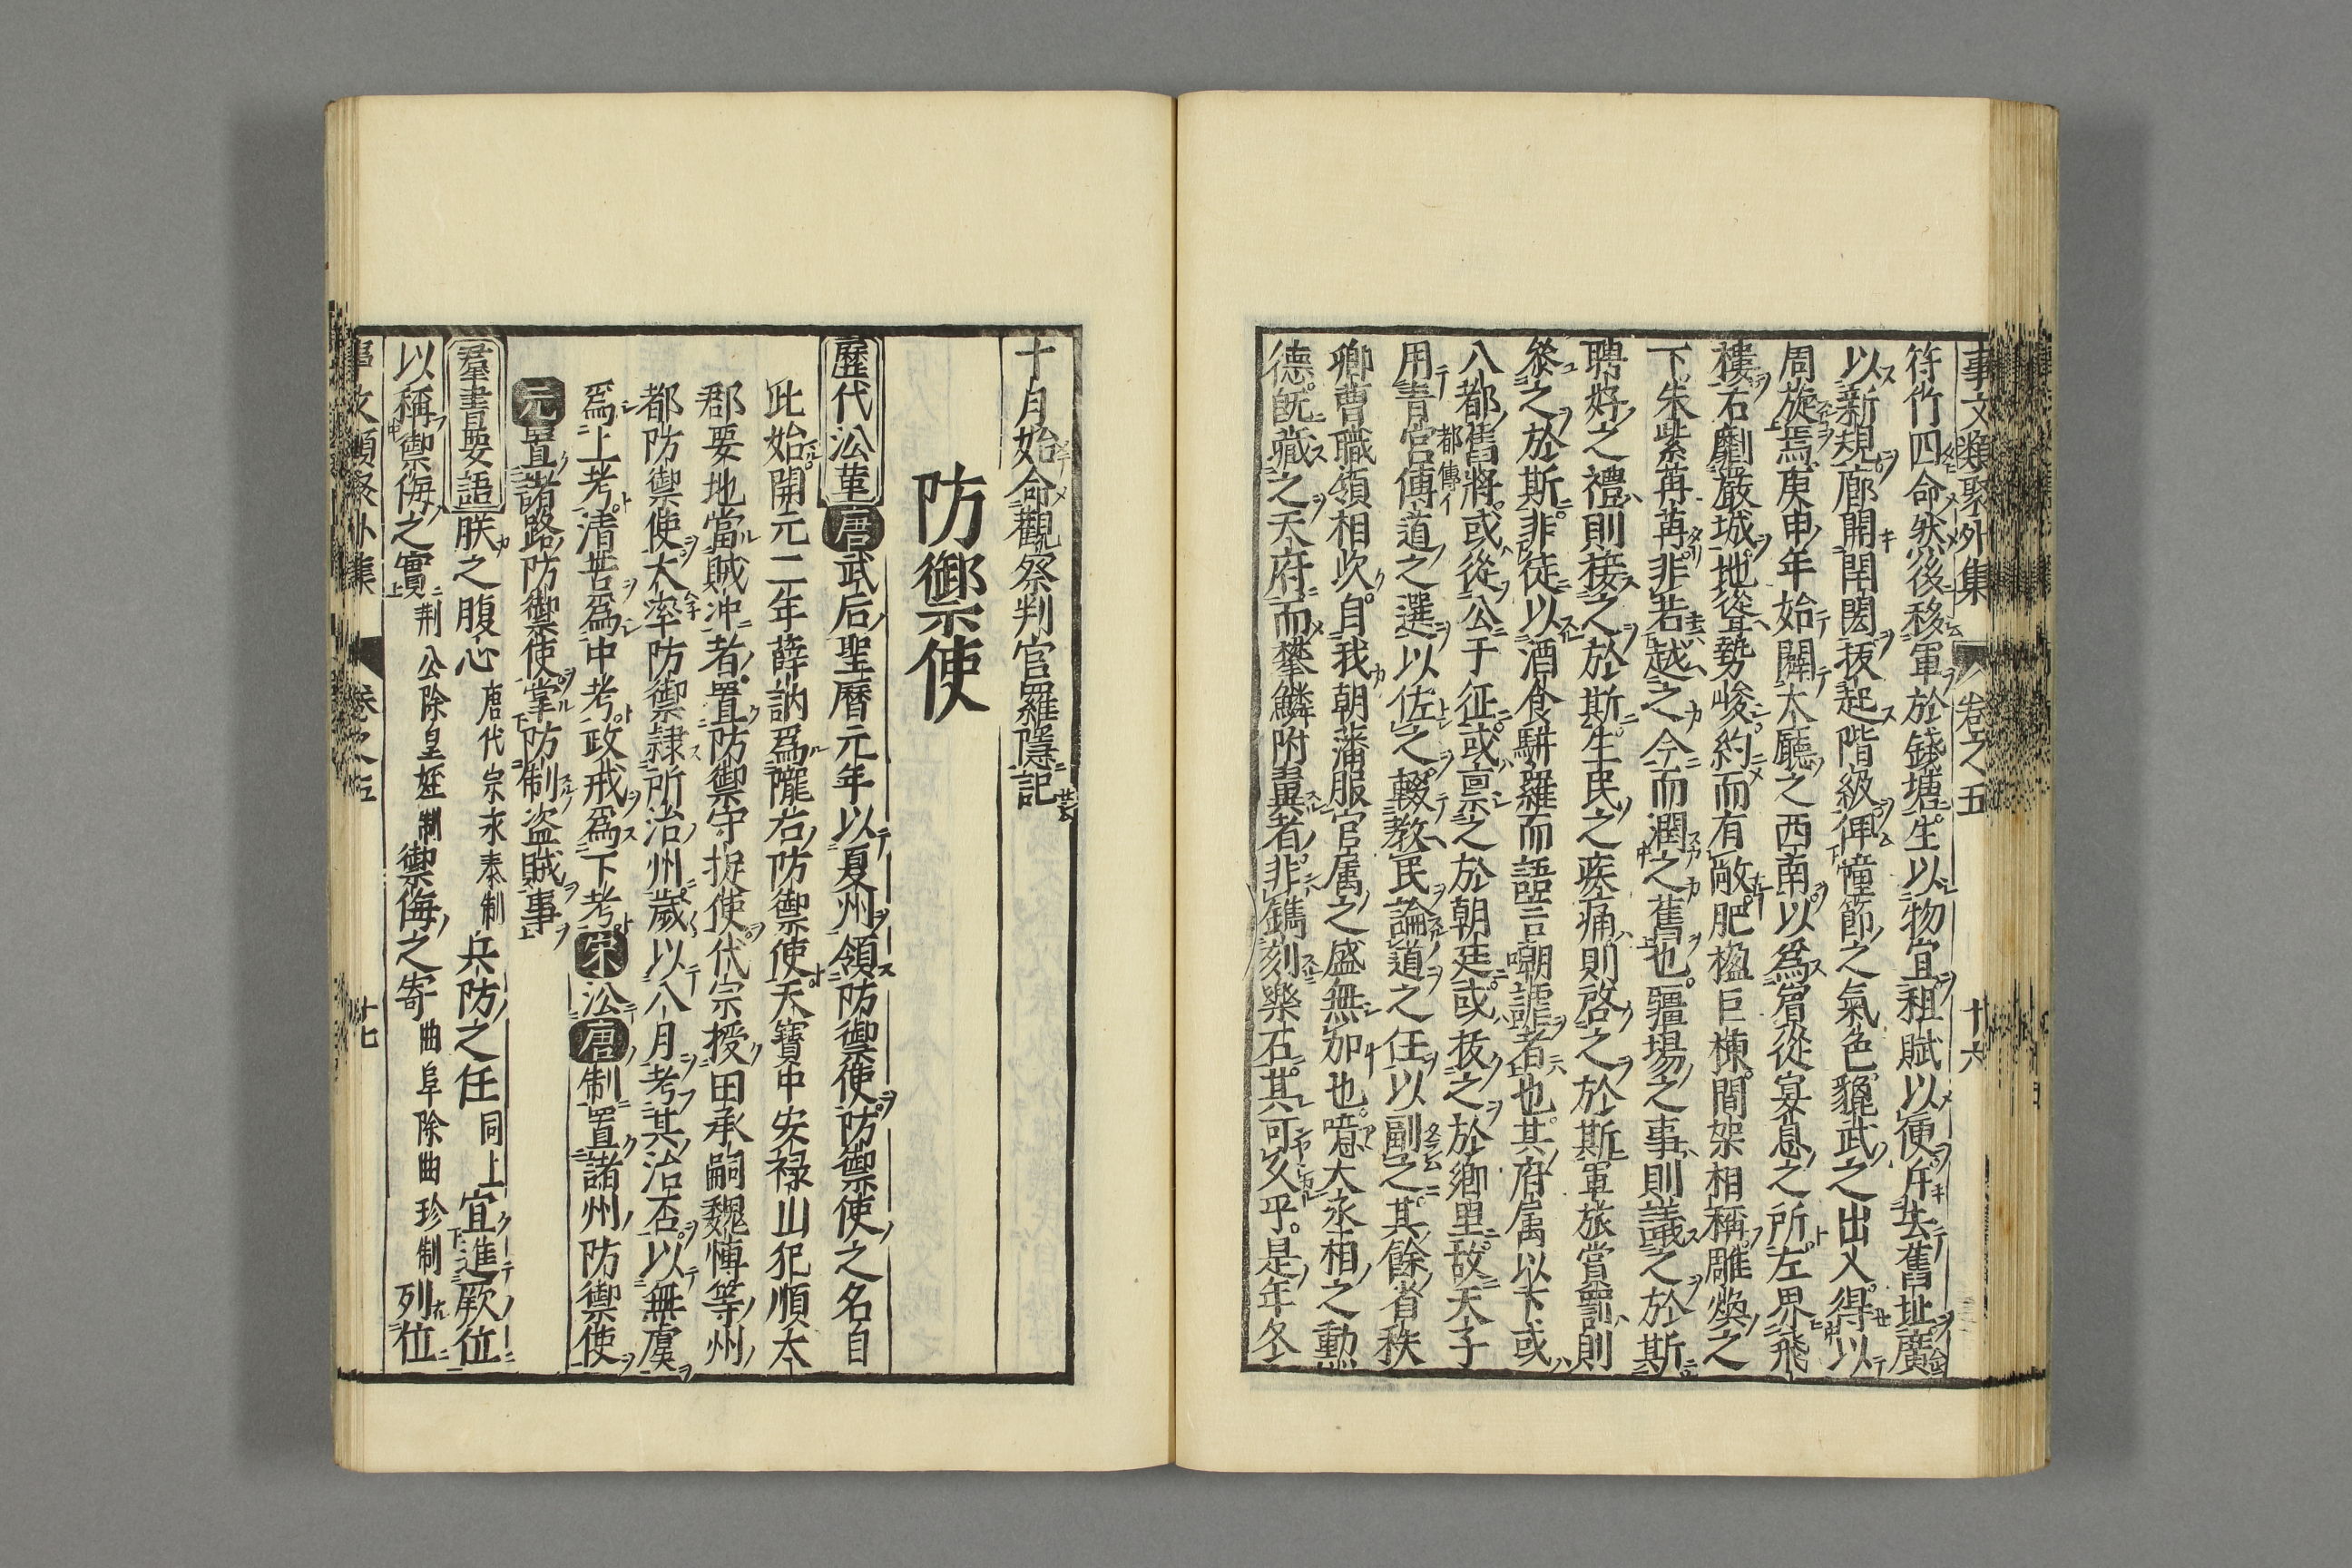 事文類聚外集 卷之五 十六
符竹四命然後移軍於錢塘生以物宜租賦以便斥去舊址廣
以新規廊開閈閎拔起階級俾幢節之氣色貔武之出入得以
周旋焉庚申年始闢大廳之西南以爲賓從宴息之所左界飛
樓右劘嚴城地聳勢峻約而有敞肥楹巨棟間架相稱雕煥之
下朱紫苒苒非若越之今而潤之舊也疆場之事則議之於斯
聘好之禮則接之於斯生民之疾痛則啓之於斯軍旅賞罰則
參之於斯非徒以酒食駢羅而語言嘲謔者也其府属以下或
八都舊將或從公于征或禀之於朝廷或拔之於鄉里故天子
用青宮傅道之選以佐之輟教民論道之任以副之其餘省秩
都傳イ
卿曹職領相次自我朝藩服官属之盛無加也噫大丞相之勳
德旣藏之天府而攀鱗附翼者非鐫刻樂石其可久乎是年冬
十月始命觀察判官羅隱記
防禦使
歷代沿革 唐武后聖曆元年以夏州領防禦使防禦使之名自
此始開元二年薛訥爲隴右防禦使天寶中安祿山犯順大
郡要地當賊冲者置防禦守捉使代宗授田承嗣魏博等州
都防禦使大率防禦隷所治州歲以八月考其治否以無虞
爲上考清苦爲中考政戒爲下考宋沿唐制置諸州防禦使
元置諸路防禦使掌防制盗賊事
羣書要語 朕之腹心 唐代宗永泰制 兵防之任 同上 宜進厥位
以稱禦侮之實 荆公除皇姪制 禦侮之寄 曲阜除曲珍制 列位
事文類聚外集 卷之五 十七